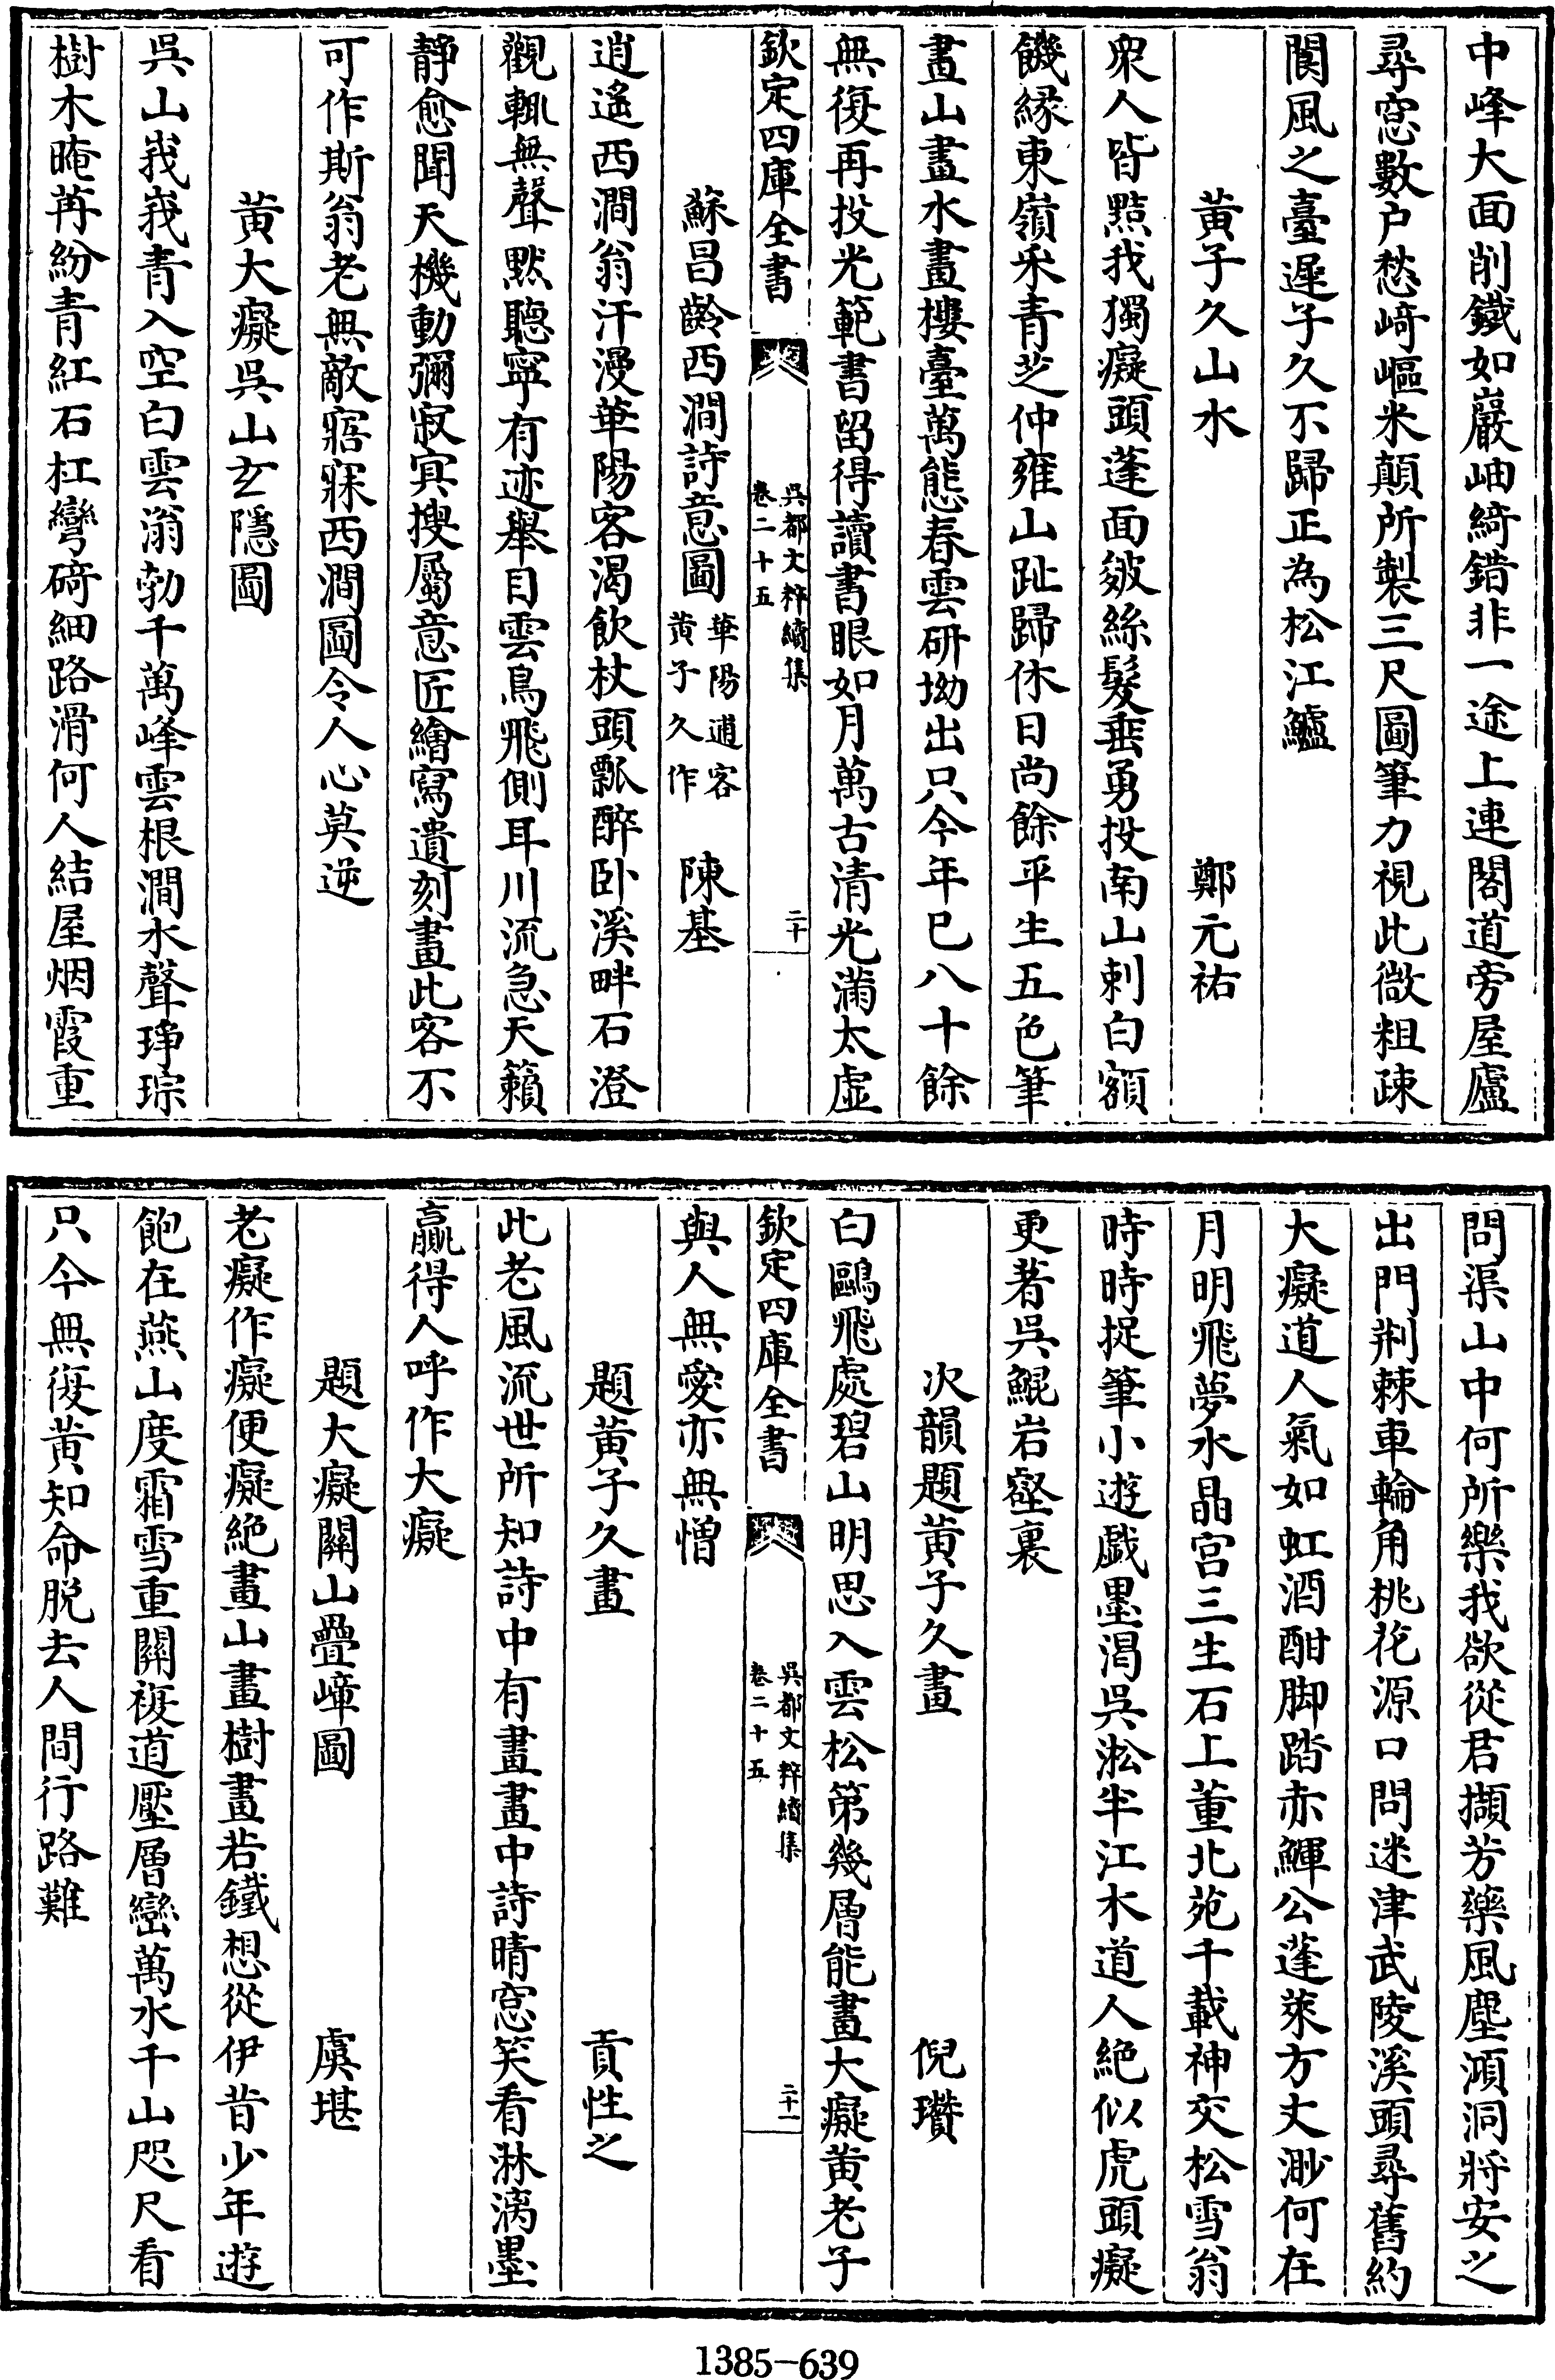 中峰大面削鐵如巖岫綺錯非一途上連閣道旁屋廬
尋窓數户愁﨑嶇米顛所製三尺圖筆力視此微粗疎
閬風之臺遲子久不歸正為松江鱸
黄子久山水 鄭元祐
衆人皆㸃我獨癡頭蓬面皴絲髮垂勇投南山刺白額
饑縁東嶺采青芝仲雍山趾歸休日尚餘平生五色筆
畫山畫水畫樓臺萬態春雲研坳出只今年已八十餘
無復再投光範書留得讀書眼如月萬古清光滿太虛
欽定四庫全書 吳都文粹續集 卷二十五 二十
蘇昌齡西澗詩意圖 華陽逋客 黄子久作 陳基
逍遙西澗翁汗漫華陽客渴飲杖頭瓢醉卧溪畔石澄
觀輒無聲默聽寧有迹舉目雲鳥飛側耳川流急天籟
靜愈聞天機動彌寂冥搜屬意匠繪寫遺刻畫此客不
可作斯翁老無敵寤寐西澗圖令人心莫逆
黄大癡吳山玄隱圖
吳山峩峩青入空白雲滃勃千萬峰雲根澗水聲琤琮
樹木晻苒紛青紅石杠彎碕細路滑何人結屋烟霞重
問渠山中何所樂我欲從君擷芳藥風塵澒洞將安之
出門荆棘車輪角桃花源口問迷津武陵溪頭尋舊約
大癡道人氣如虹酒酣脚踏赤鯶公蓬萊方丈渺何在
月明飛夢水晶宫三生石上董北苑千載神交松雪翁
時時捉筆小遊戯墨渴吳淞半江水道人絶似虎頭癡
更著吳鯤岩壑裏
次韻題黄子久畫 倪瓚
白鷗飛處碧山明思入雲松第幾層能畫大癡黄老子
欽定四庫全書 吳都文粹續集 卷二十五 二十一
與人無愛亦無憎
題黄子久畫 貢性之
此老風流世所知詩中有畫畫中詩晴窓笑看淋漓墨
贏得人呼作大癡
題大癡關山疊嶂圖 虞堪
老癡作癡便癡絶畫山畫樹畫若鐵想從伊昔少年遊
飽在燕山度霜雪重關複道壓層巒萬水千山咫尺看
只今無復黄知命脱去人間行路難
1385-639